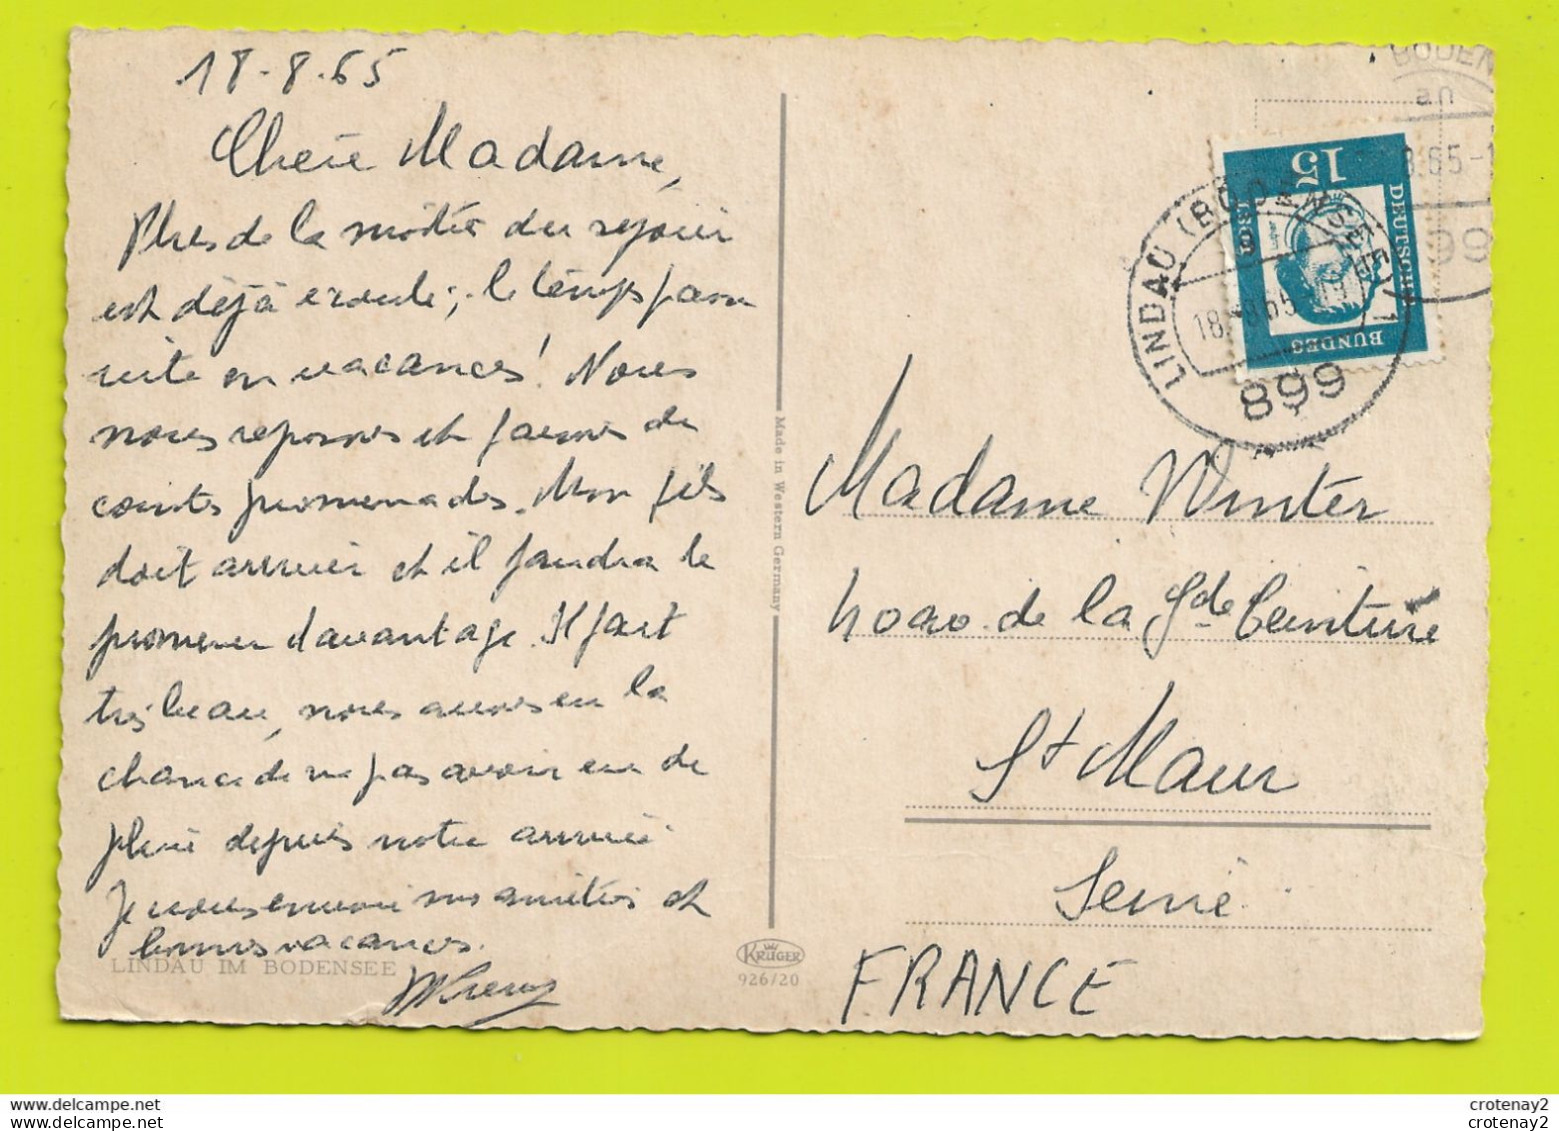 18-8.65
Chère Madame,
Plus de la moitié du séjour
est déjà écoulé; le temps passe
vite en vacances! Nous
nous reposons et faisons de
courtes promenades. Mon fils
doit arriver et il faudra le
promener davantage. Il fait
très beau, nous avons eu la
chance de ne pas avoir eu de
pluie depuis notre arrivée
Je vous envoie mes amitiés et
bonnes vacances.
LINDAU IM BODENSEE
Made in Western Germany
KRÜGER
926/20
BODEN
an
8.65-1
99
15
DEUTSCHE
BUNDES
LINDAU (BODENSEE) 1
18.-8.65
899
Madame Winter
de la Gde Ceinture
St Maur
Seine
FRANCE
crotenay2
crotenay2